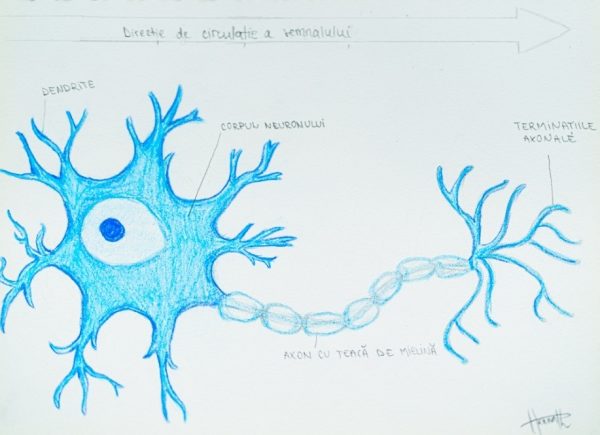 Direcție de circulație a semnalului
DENDRITE
CORPUL NEURONULUI
TERMINAȚIILE
AXONALE
AXON CU TEACĂ DE MIELINĂ